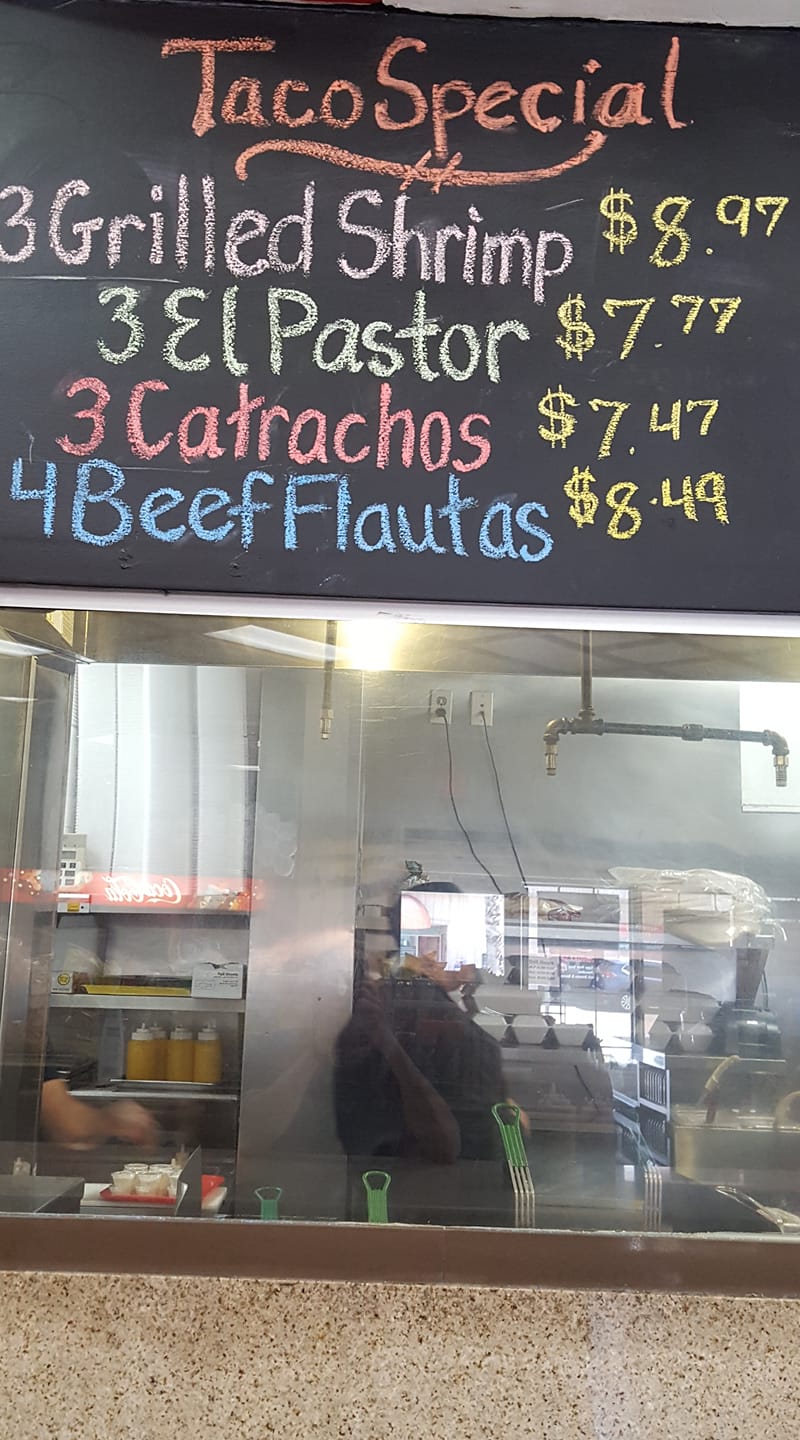 Taco Special
3 Grilled Shrimp $8.97
3 El Pastor $7.77
3 Catrachos $7.47
4 Beef Flautas $8.49
Coca-Cola